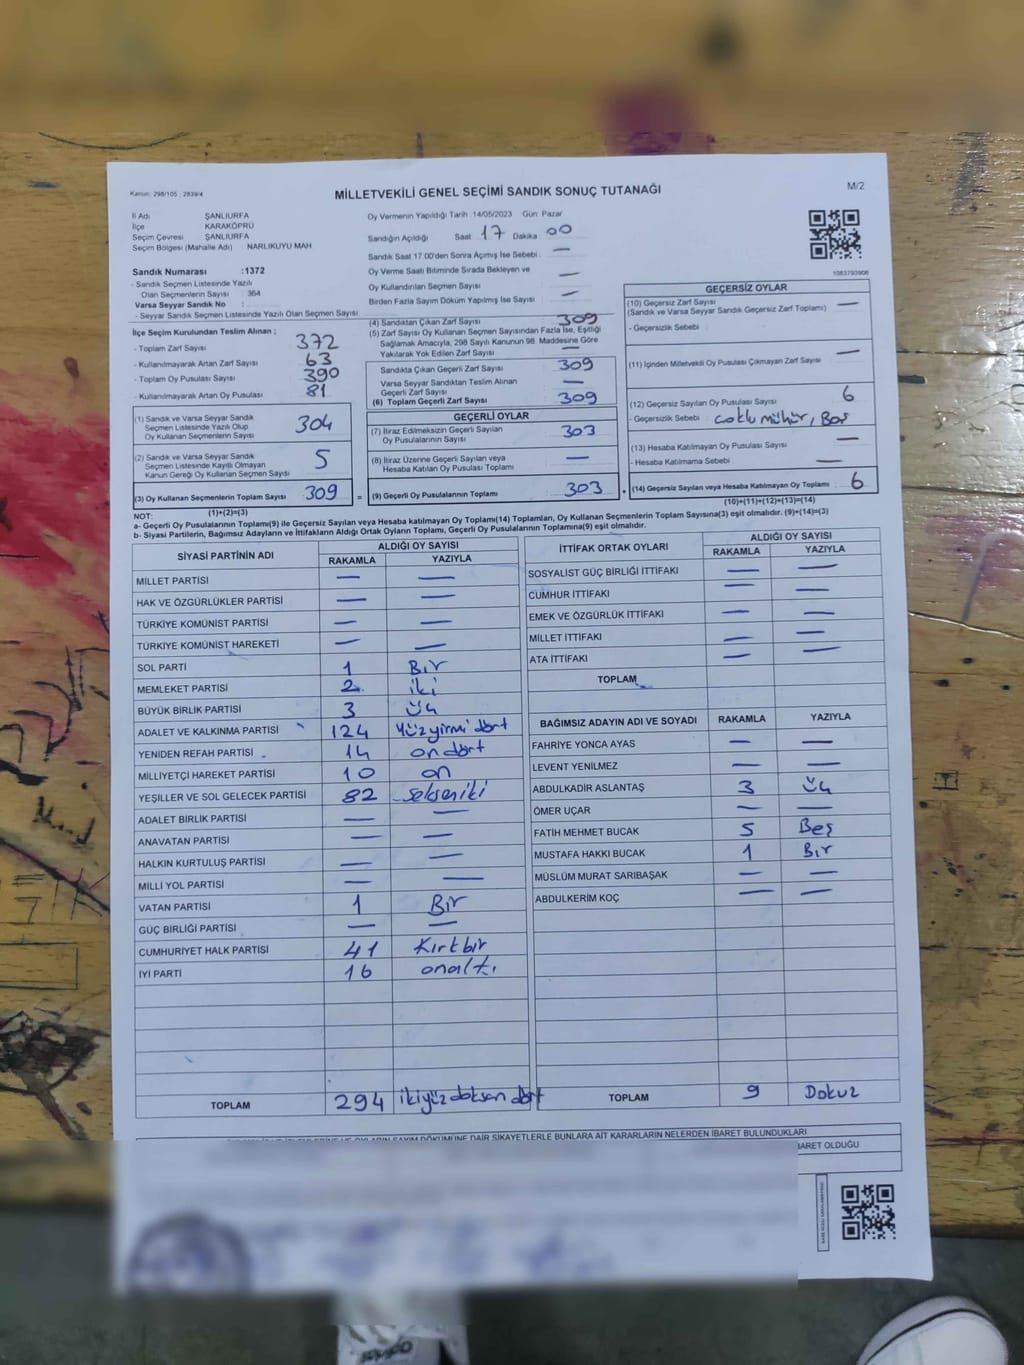 Kanun: 298/105 , 2839/4
MİLLETVEKİLİ GENEL SEÇİMİ SANDIK SONUÇ TUTANAĞI
M/2
İl Adı ŞANLIURFA
İlçe KARAKÖPRÜ
Seçim Çevresi ŞANLIURFA
Seçim Bölgesi (Mahalle Adı) NARLIKUYU MAH
Oy Vermenin Yapıldığı Tarih :14/05/2023 Gün: Pazar
Sandığın Açıldığı Saat 17 Dakika 00
Sandık Saat 17.00'den Sonra Açımış İse Sebebi: —
Oy Verme Saati Bitiminde Sırada Bekleyen ve
Oy Kullandırılan Seçmen Sayısı —
Birden Fazla Sayım Döküm Yapılmış İse Sayısı —
Sandık Numarası :1372
- Sandık Seçmen Listesinde Yazılı
Olan Seçmenlerin Sayısı : 364
Varsa Seyyar Sandık No :
- Seyyar Sandık Seçmen Listesinde Yazılı Olan Seçmen Sayısı
1083793906
İlçe Seçim Kurulundan Teslim Alınan ;
- Toplam Zarf Sayısı 372
- Kullanılmayarak Artan Zarf Sayısı 63
- Toplam Oy Pusulası Sayısı 390
- Kullanılmayarak Artan Oy Pusulası 81
(1) Sandık ve Varsa Seyyar Sandık
Seçmen Listesinde Yazılı Olup
Oy Kullanan Seçmenlerin Sayısı 304
(2) Sandık ve Varsa Seyyar Sandık
Seçmen Listesinde Kayıtlı Olmayan
Kanun Gereği Oy Kullanan Seçmen Sayısı 5
(3) Oy Kullanan Seçmenlerin Toplam Sayısı 309 =
(1)+(2)=(3)
(4) Sandıktan Çıkan Zarf Sayısı 309
(5) Zarf Sayısı Oy Kullanan Seçmen Sayısından Fazla İse, Eşitliği
Sağlamak Amacıyla, 298 Sayılı Kanunun 98. Maddesine Göre
Yakılarak Yok Edilen Zarf Sayısı —
Sandıkta Çıkan Geçerli Zarf Sayısı 309
Varsa Seyyar Sandıktan Teslim Alınan
Geçerli Zarf Sayısı —
(6) Toplam Geçerli Zarf Sayısı 309
GEÇERLİ OYLAR
(7) İtiraz Edilmeksizin Geçerli Sayılan
Oy Pusulalarının Sayısı 303
(8) İtiraz Üzerine Geçerli Sayılan veya
Hesaba Katılan Oy Pusulası Toplamı —
(9) Geçerli Oy Pusulalarının Toplamı 303 +
GEÇERSİZ OYLAR
(10) Geçersiz Zarf Sayısı —
(Sandık ve Varsa Seyyar Sandık Geçersiz Zarf Toplamı)
- Geçersizlik Sebebi
(11) İçinden Milletvekili Oy Pusulası Çıkmayan Zarf Sayısı —
(12) Geçersiz Sayılan Oy Pusulası Sayısı 6
- Geçersizlik Sebebi : çoklu mühür, Boş
(13) Hesaba Katılmayan Oy Pusulası Sayısı —
- Hesaba Katılmama Sebebi —
(14) Geçersiz Sayılan veya Hesaba Katılmayan Oy Toplamı 6
(10)+(11)+(12)+(13)=(14)
NOT:
a- Geçerli Oy Pusulalarının Toplamı(9) ile Geçersiz Sayılan veya Hesaba katılmayan Oy Toplamı(14) Toplamları, Oy Kullanan Seçmenlerin Toplam Sayısına(3) eşit olmalıdır. (9)+(14)=(3)
b- Siyasi Partilerin, Bağımsız Adayların ve İttifakların Aldığı Ortak Oyların Toplamı, Geçerli Oy Pusulalarının Toplamına(9) eşit olmalıdır.
SİYASİ PARTİNİN ADI ALDIĞI OY SAYISI
RAKAMLA YAZIYLA
MİLLET PARTİSİ — —
HAK VE ÖZGÜRLÜKLER PARTİSİ — —
TÜRKİYE KOMÜNİST PARTİSİ — —
TÜRKİYE KOMÜNİST HAREKETİ — —
SOL PARTİ 1 Bir
MEMLEKET PARTİSİ 2 iki
BÜYÜK BİRLİK PARTİSİ 3 üç
ADALET VE KALKINMA PARTİSİ 124 Yüzyirmi dört
YENİDEN REFAH PARTİSİ 14 on dört
MİLLİYETÇİ HAREKET PARTİSİ 10 on
YEŞİLLER VE SOL GELECEK PARTİSİ 82 sekseniki
ADALET BİRLİK PARTİSİ — —
ANAVATAN PARTİSİ — —
HALKIN KURTULUŞ PARTİSİ — —
MİLLİ YOL PARTİSİ — —
VATAN PARTİSİ 1 Bir
GÜÇ BİRLİĞİ PARTİSİ — —
CUMHURİYET HALK PARTİSİ 41 Kırkbir
İYİ PARTİ 16 onaltı
TOPLAM 294 ikiyüz doksan dört
İTTİFAK ORTAK OYLARI ALDIĞI OY SAYISI
RAKAMLA YAZIYLA
SOSYALİST GÜÇ BİRLİĞİ İTTİFAKI — —
CUMHUR İTTİFAKI — —
EMEK VE ÖZGÜRLÜK İTTİFAKI — —
MİLLET İTTİFAKI — —
ATA İTTİFAKI — —
TOPLAM
BAĞIMSIZ ADAYIN ADI VE SOYADI RAKAMLA YAZIYLA
FAHRİYE YONCA AYAS — —
LEVENT YENİLMEZ — —
ABDULKADİR ASLANTAŞ 3 üç
ÖMER UÇAR — —
FATİH MEHMET BUCAK 5 Beş
MUSTAFA HAKKI BUCAK 1 Bir
MÜSLÜM MURAT SARIBAŞAK — —
ABDULKERİM KOÇ — —
TOPLAM 9 Dokuz
OYLARIN SAYIM DÖKÜMÜNE DAİR ŞİKAYETLERLE BUNLARA AİT KARARLARIN NELERDEN İBARET BULUNDUKLARI
İBARET OLDUĞU